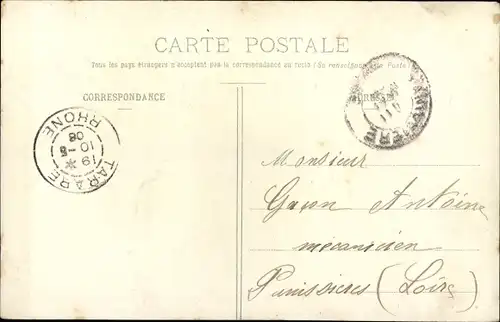 CARTE POSTALE
Tous les pays étrangers n'acceptent pas la correspondance au recto (Se renseigner à la Poste)
CORRESPONDANCE
ADRESSE
TARARE
19 *
10 - 5
08
RHONE
Monsieur
Guyon Antoine
mécanicien
Panissières (Loire)